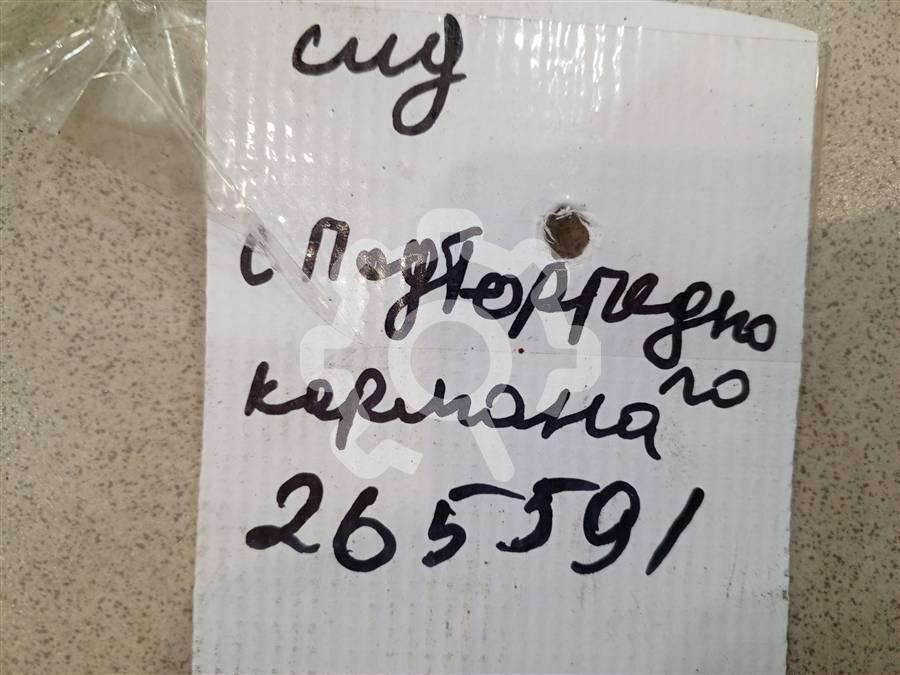 сид
с Подторпедно
го
кармана
265591